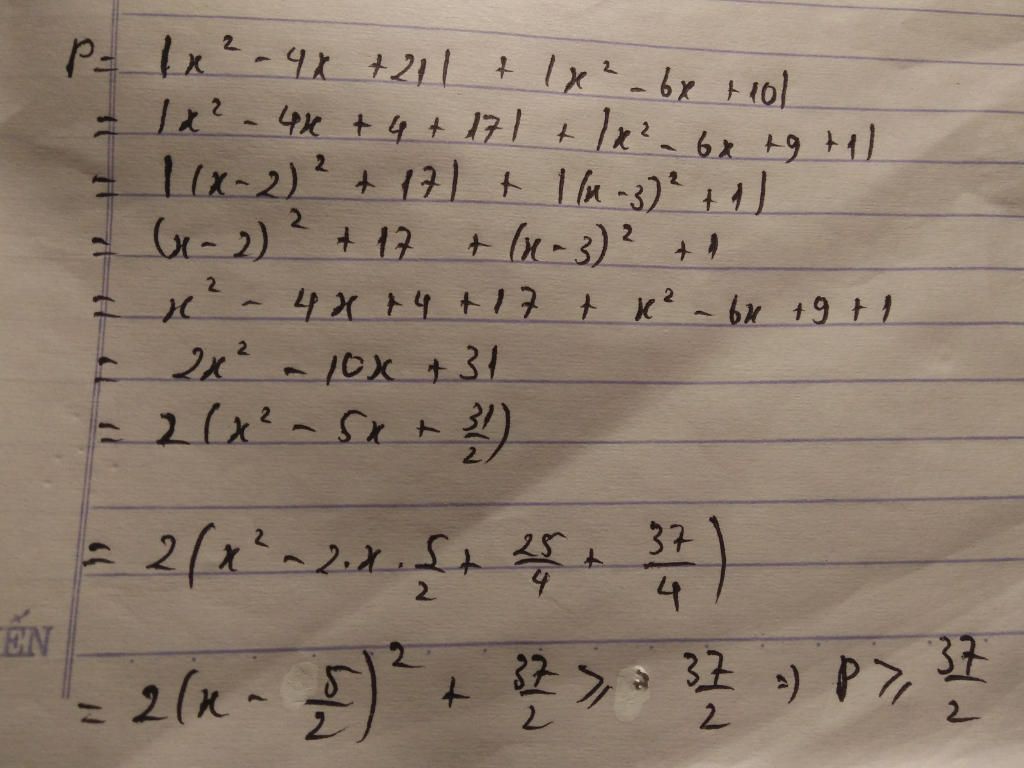 P = |x² - 4x + 21| + |x² - 6x + 10|
= |x² - 4x + 4 + 17| + |x² - 6x + 9 + 1|
= |(x-2)² + 17| + |(x-3)² + 1|
= (x-2)² + 17 + (x-3)² + 1
= x² - 4x + 4 + 17 + x² - 6x + 9 + 1
= 2x² - 10x + 31
= 2(x² - 5x + 31/2)
= 2(x² - 2.x.5/2 + 25/4 + 37/4)
ẾN
= 2(x - 5/2)² + 37/2 ⩾ 37/2 => P ⩾ 37/2